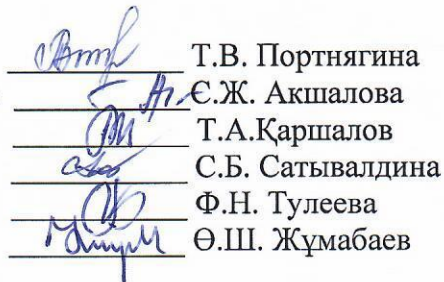 Т.В. Портнягина
Є.Ж. Акшалова
Т.А.Қаршалов
С.Б. Сатывалдина
Ф.Н. Тулеева
Ө.Ш. Жұмабаев